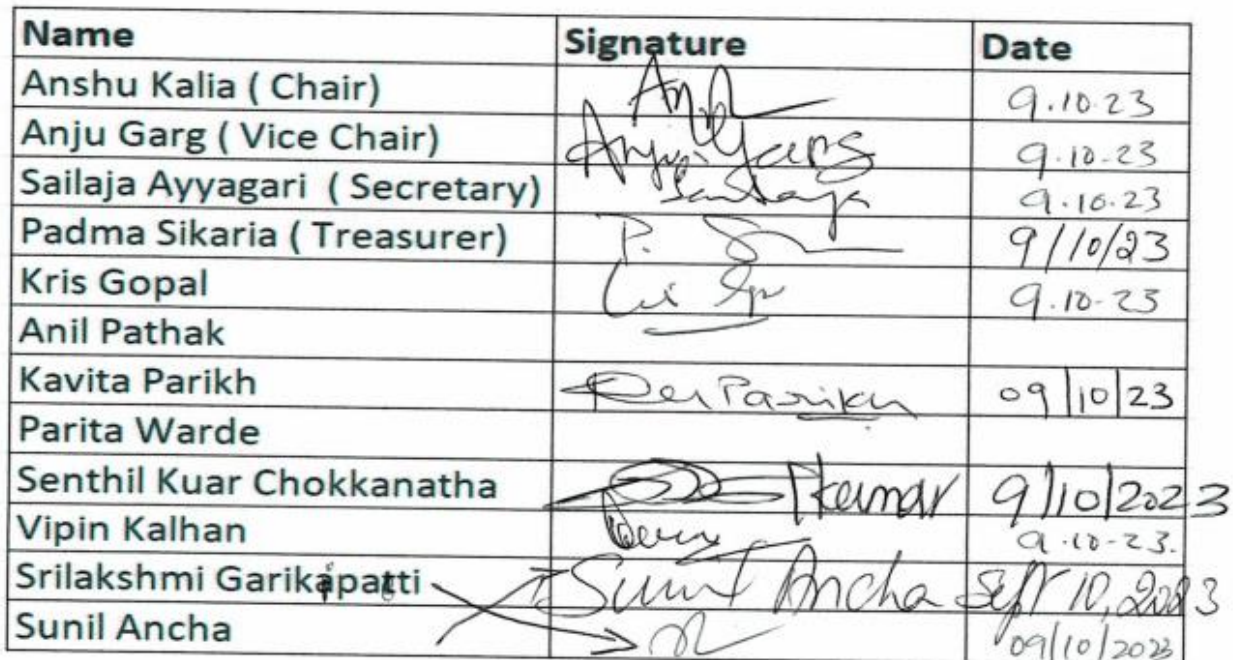 Name Signature Date
Anshu Kalia ( Chair) 9.10.23
Anju Garg ( Vice Chair) Anju Garg 9.10-23
Sailaja Ayyagari ( Secretary) 9.10.23
Padma Sikaria ( Treasurer) P. 9/10/23
Kris Gopal 9.10-23
Anil Pathak
Kavita Parikh Parikh 09/10/23
Parita Warde
Senthil Kuar Chokkanatha Kumar 9/10/2023
Vipin Kalhan 9.10-23.
Srilakshmi Garikapatti Sunil Ancha Sept 10, 2023
Sunil Ancha 09/10/2023